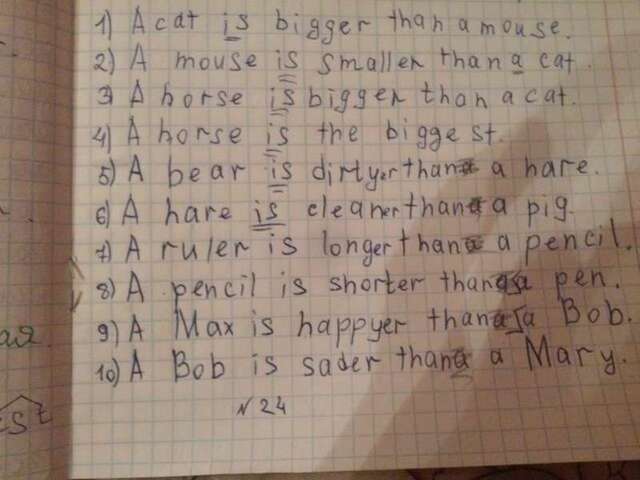 1) A cat is bigger than a mouse.
2) A mouse is smaller than a cat.
3) A horse is bigger than a cat.
4) A horse is the biggest.
5) A bear is dirtyer than a hare.
6) A hare is cleaner than a pig.
7) A ruler is longer than a pencil.
8) A pencil is shorter than a pen.
9) A Max is happyer than a Bob.
ая
10) A Bob is sader than a Mary.
N 24
est